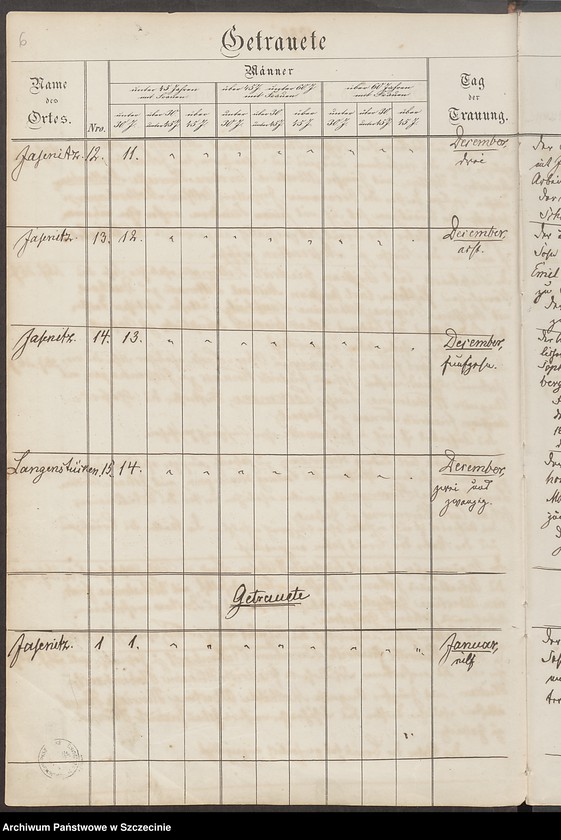 6
Getrauete
Name
des
Ortes.
Nro.
Männer
unter 45 Jahren
mit Frauen
über 45 J. unter 60 J.
mit Frauen
über 60 Jahren
mit Frauen
unter 30 J.
über 30 unter 45 J.
über 45 J.
unter 30 J.
über 30 unter 45 J.
über 45 J.
unter 30 J.
über 30 unter 45 J.
über 45 J.
Tag
der
Trauung.
Jasenitz. 12. 11. December,
drei
Jasenitz 13. 12. December,
acht.
Jasenitz. 14. 13. December,
fünfzehn.
15. 14. December,
zwei und
zwanzig.
Getrauete
Jasenitz. 1 1. Januar,
elf
Archiwum Państwowe w Szczecinie